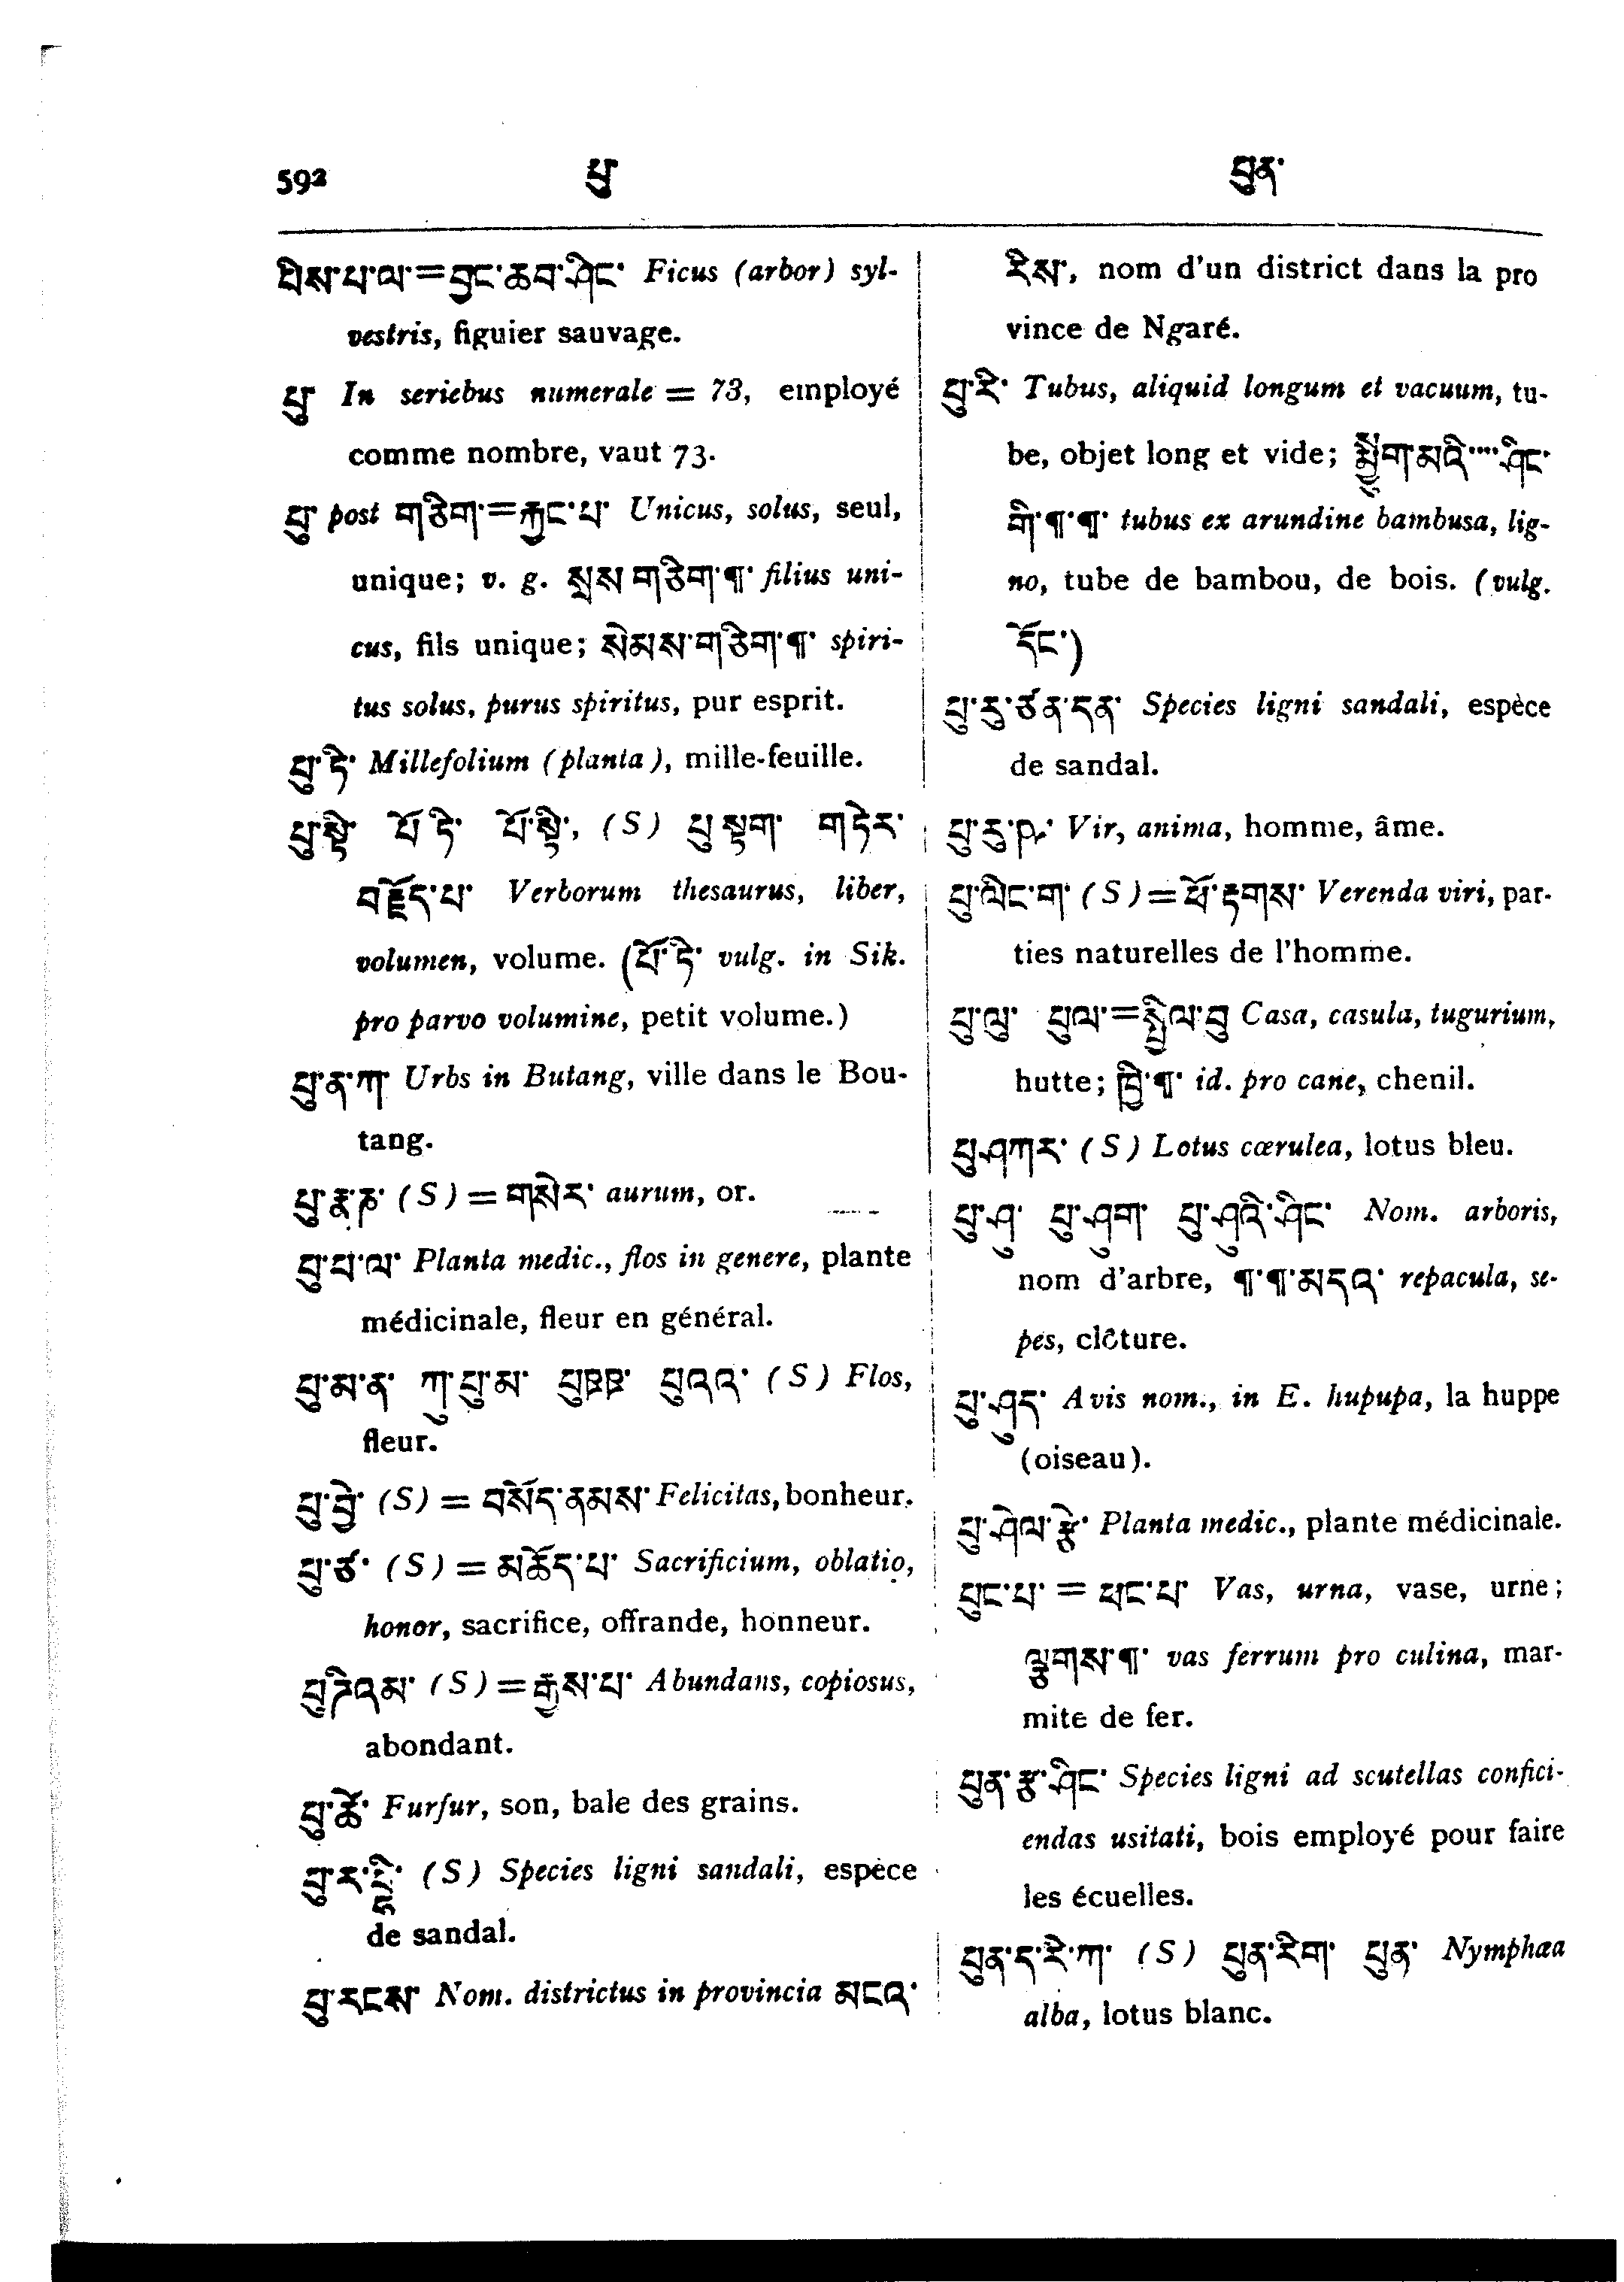 592 པུ པུན་
པིས་པ་ལ་=བྱང་ཆབ་ཤིང་ Ficus (arbor) syl-
vestris, figuier sauvage.
པུ In seriebus numerale = 73, employé
comme nombre, vaut 73.
པུ་ post གཅིག་=རྐྱང་པ་ Unicus, solus, seul,
unique; v. g. སྲས གཅིག་¶་ filius uni-
cus, fils unique; སེམས་གཅིག་¶་ spiri-
tus solus, purus spiritus, pur esprit.
པུ་ཏི་ Millefolium (planta), mille-feuille.
པུ་སྟི་ པོ་ཏི་ པོ་སྟི་, (S) པུ་སྟག་ གཏེར་
བརྗོད་པ་ Verborum thesaurus, liber,
volumen, volume. (པོ་ཏི་ vulg. in Sik.
pro parvo volumine, petit volume.)
པུ་ན་ཀ་ Urbs in Butang, ville dans le Bou-
tang.
པུ་རྣ་ཎ་ (S) = གསེར་ aurum, or.
པུ་པ་ལ་ Planta medic., flos in genere, plante
médicinale, fleur en général.
པུ་མ་ན་ ཀུ་པུ་མ་ (S) Flos,
fleur.
པུ་བྱེ་ (S) = བསོད་ནམས་ Felicitas, bonheur.
པུ་ཙ་ (S) = མཆོད་པ་ Sacrificium, oblatio,
honor, sacrifice, offrande, honneur.
(S) = རྒྱས་པ་ Abundans, copiosus,
abondant.
པུ་ཚོ་ Furfur, son, bale des grains.
(S) Species ligni sandali, espèce
de sandal.
པུ་རངས་ Nom. districtus in provincia མངའ་
རིས་, nom d'un district dans la pro
vince de Ngaré.
པུ་རི་ Tubus, aliquid longum et vacuum, tu-
be, objet long et vide; སྨྱོག་མའི་····ཤིང་
གི་¶་¶་ tubus ex arundine bambusa, lig-
no, tube de bambou, de bois. (vulg.
དོང་)
པུ་རུ་ཙན་དན་ Species ligni sandali, espèce
de sandal.
པུ་རུ་ཥ་ Vir, anima, homme, âme.
པུ་ལིང་ག་ (S) = ཕོ་རྟགས་ Verenda viri, par-
ties naturelles de l'homme.
པུ་ལུ་ པུལ་=སྤྱིལ་བུ Casa, casula, tugurium,
hutte; ཁྱི་¶་ id. pro cane, chenil.
པུ་ཤཀར་ (S) Lotus cœrulea, lotus bleu.
པུ་ཤུ་ པུ་ཤུག་ པུ་ཤུའི་ཤིང་ Nom. arboris,
nom d'arbre, ¶་¶་མདའ་ repacula, se-
pes, clôture.
པུ་ཤུད་ Avis nom., in E. hupupa, la huppe
(oiseau).
པུ་ཤེལ་རྩེ་ Planta medic., plante médicinale.
པུང་པ་ = ཕང་པ་ Vas, urna, vase, urne;
ལྕགས་¶་ vas ferrum pro culina, mar-
mite de fer.
པུན་རྩ་ཤིང་ Species ligni ad scutellas confici-
endas usitati, bois employé pour faire
les écuelles.
པུན་ད་རི་ཀ་ (S) པུན་རིག་ པུན་ Nymphæa
alba, lotus blanc.